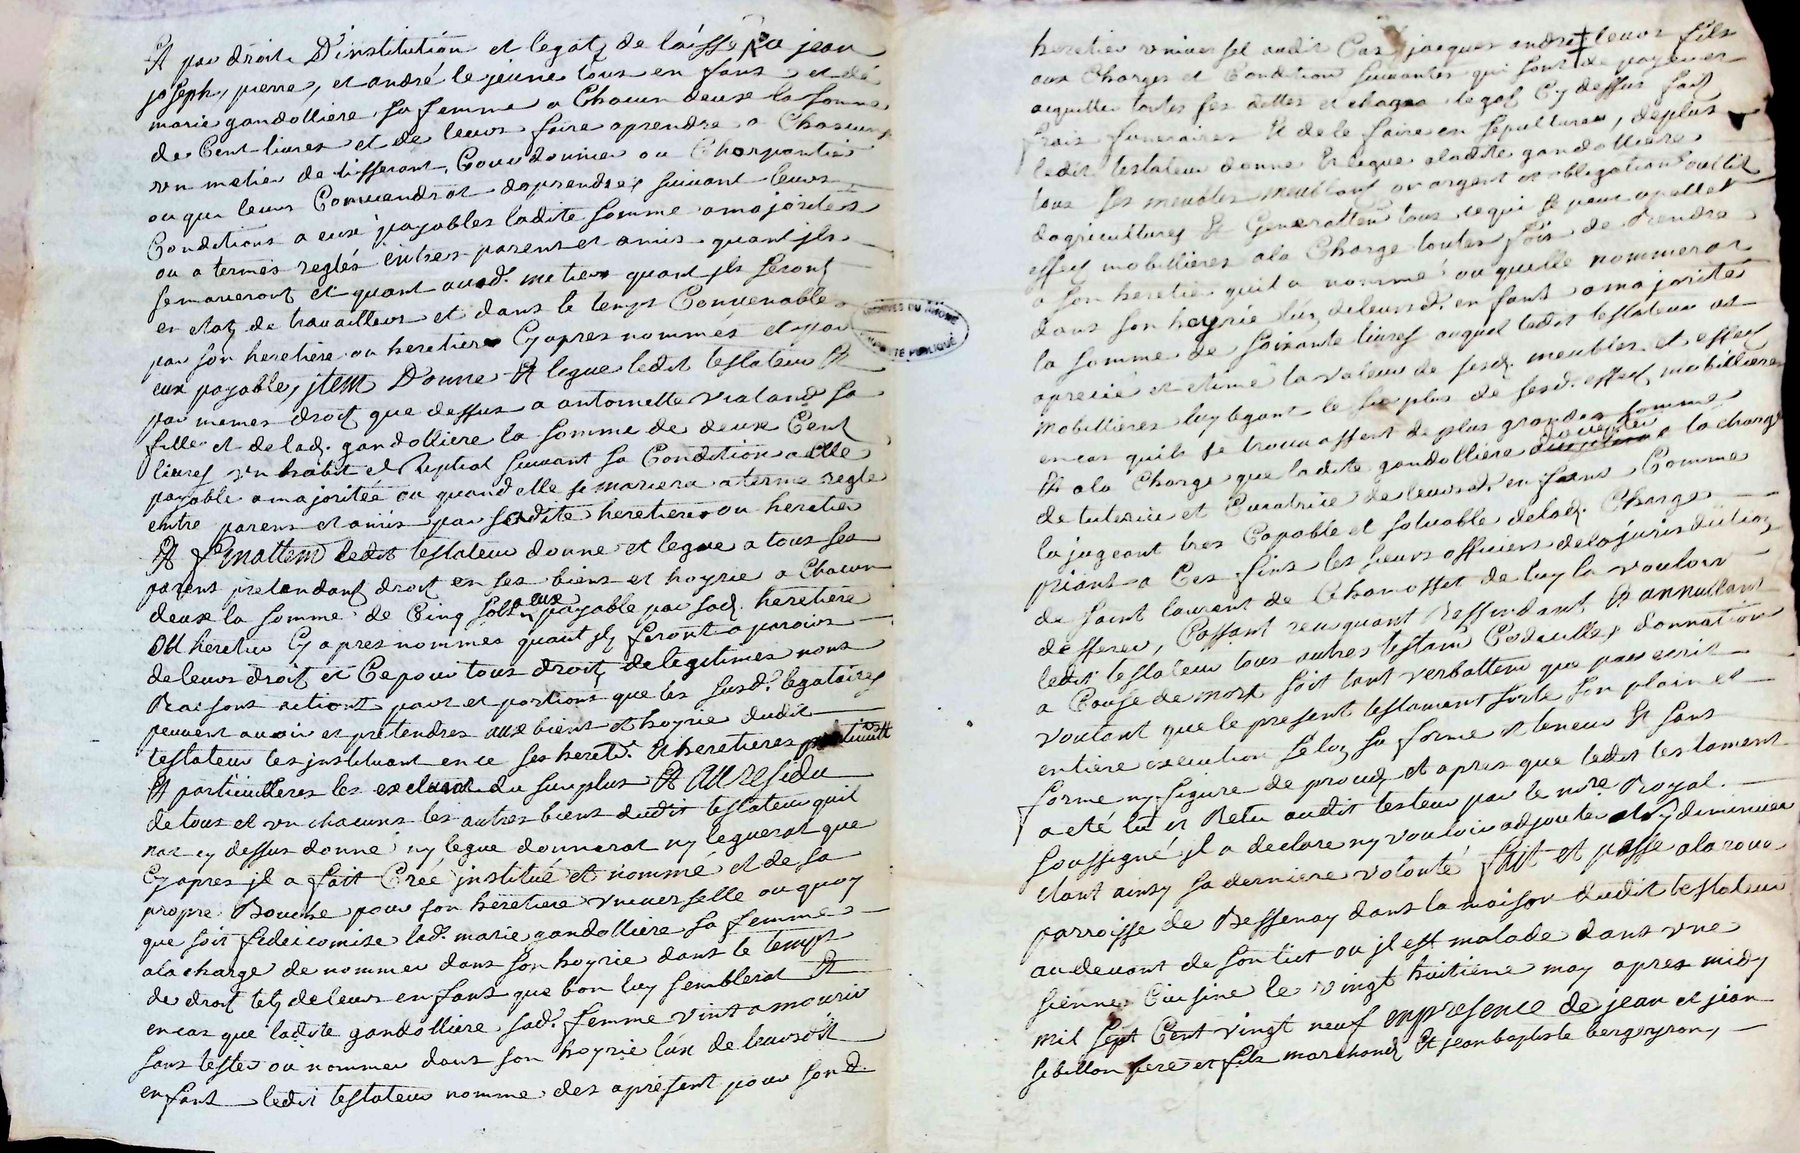 Et par droit D'institution et legatz de laisse a jean
joseph, pierre, et andré le jeune tous en fans et de
marie gandolliere sa femme a Chacun deux la somme
de Cent livres et de leurs faire aprendre a Chascung
un metier de tisserant, Courdonnier ou Charpantier
ou qui leurs Conviendrat daprendre, suivant leurs
Conditions a eux payables ladite somme a majorités
ou a termes reglés entres parens et amis quant ils
se marieront et quant aud. metier quant ils seront
en etatz de travailleur et dans le temps Convenable
par son heretière ou heretier Cyapres nommés et par
eux payable, jtem Donne Et legue ledit testateur Et
par memes droit que dessus a antoinette vialand sa
fille et de lad. gandolliere la somme de deux Cent
livres un habit Nuptial suivant sa Condition a elle
payable a majoritée ou quand elle se mariera a terme regle
entre parens et amis par sadite heretiere ou heretier
Et finallem ledit testateur donne et legue a tous ses
parens pretendant droit en ses biens et hoyrie a Chacun
deux la somme de Cinq sols a eux payable par sad. heretiere
ou heretier Cyapres nommés quant ilz seront aparoir
de leurs droit et Ce pour tous droitz de legitimes noms
Raisons actions part et portions que les susd. legataires
peuvent avoir et pretendres aux biens et hoyrie dudit
testateur les jnstituant en ce ses heret. Et heretieres
Et particulieres les excluant du surplus Et au residu
de tous et un chacuns les autres biens dudit testateur quil
nat cy dessus donné ny legue donnerat ny leguerat que
Cyapres jl a fait Créé jnstitué et nommé et de sa
propre Bouche pour son héretiere universelle ou quoy
que soit fideicomise lad. marie gandolliere sa femme
a la charge de nommer dans son hoyrie dans le temps
de droit telz de leurs enfans que bon luy semblerat Et
encas que ladite gandolliere sad. femme vint a mourir
sans tester ou nommer dans son hoyrie lun de leursdit
enfans ledit testateur nomme des apresent pour sond.
heretier universel audit Cas jacques andre leurs fils
aux Charges et Condition suivantes qui sont de payer et
acquitter toutes ses dettes et charges legat Cy dessus fait
frais funeraires Et de le faire en sepulturer, deplus
ledit testateur donne Et legue a ladite gandolliere
tous ses meubles meublant or argent et obligations outtil
dagricultures Et Generallem tous ce qui se peut apeller
effect mobillieres a la Charge toutes fois de Rendre
a son heretier quil a nommé ou quelle nommerat
dans son hoyrie lun de leursd. en fans a majorité
la somme de soixante livres auquel ledit testateur at
aprecié et etimé la valeur de sesd. meubles et effects
mobillieres luy legant le surplus de sesd. effect mobillieres
encas quils se trouvassent de plus grandes somme
Et a la Charge que ladite gandolliere accepter a la charge
de tuterice et Curatrice de leursd. en fans Comme
la jugeant tres Capable et solvable delad. Charge
priant a Ces fins les sieurs officiers de la jurisdiction
de saint laurent de Chamosset de luy la vouloir
defferer, Cassant revoquant Reffondant Et annullant
ledit testateur tous autres testam Codicilles, donnation
a Cause de mort soit tant verballem que par ecrit
voulant que le present testament sorte son plain et
entiere execution selon sa forme et teneur Et sans
forme ny figure de proces et apres que ledit testament
a eté lu et Relu audit testeur par le nore Royal
soussigné jl a declare ny vouloir adjouter ny diminuer
etant ainsy sa derniere volonté fait et passe a la roua
parroisse de Bessenay dans la maison dudit testateur
au devant de son lict ou jl est malade dans une
sienne Cuisine le vingt huitieme may apres midy
mil sept Cent vingt neuf enpresence de jean et jean
sebillon pere et fils marchands Et jean baptiste bergeyron,
ARCHIVES DU RHONE
PUBLIQUE